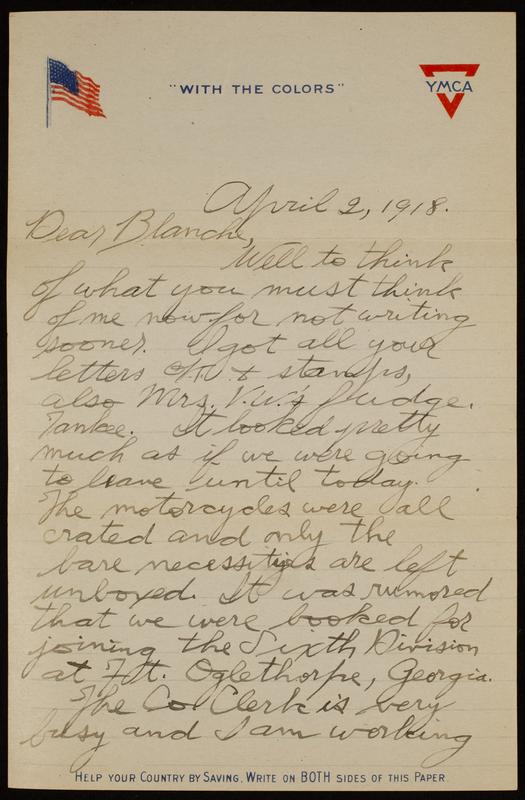 "WITH THE COLORS"
YMCA
April 2, 1918.
Dear Blanche,
Well to think
of what you must think
of me now for not writing
sooner. I got all your
letters & stamps,
also Mrs. V.W.'s fudge.
Tankee. It looked pretty
much as if we were going
to leave until today.
The motorcycles were all
crated and only the
bare necessities are left
unboxed. It was rumored
that we were booked for
joining the Sixth Division
at Ft. Oglethorpe, Georgia.
The Co. Clerk is very
busy and I am working
HELP YOUR COUNTRY BY SAVING. WRITE ON BOTH SIDES OF THIS PAPER